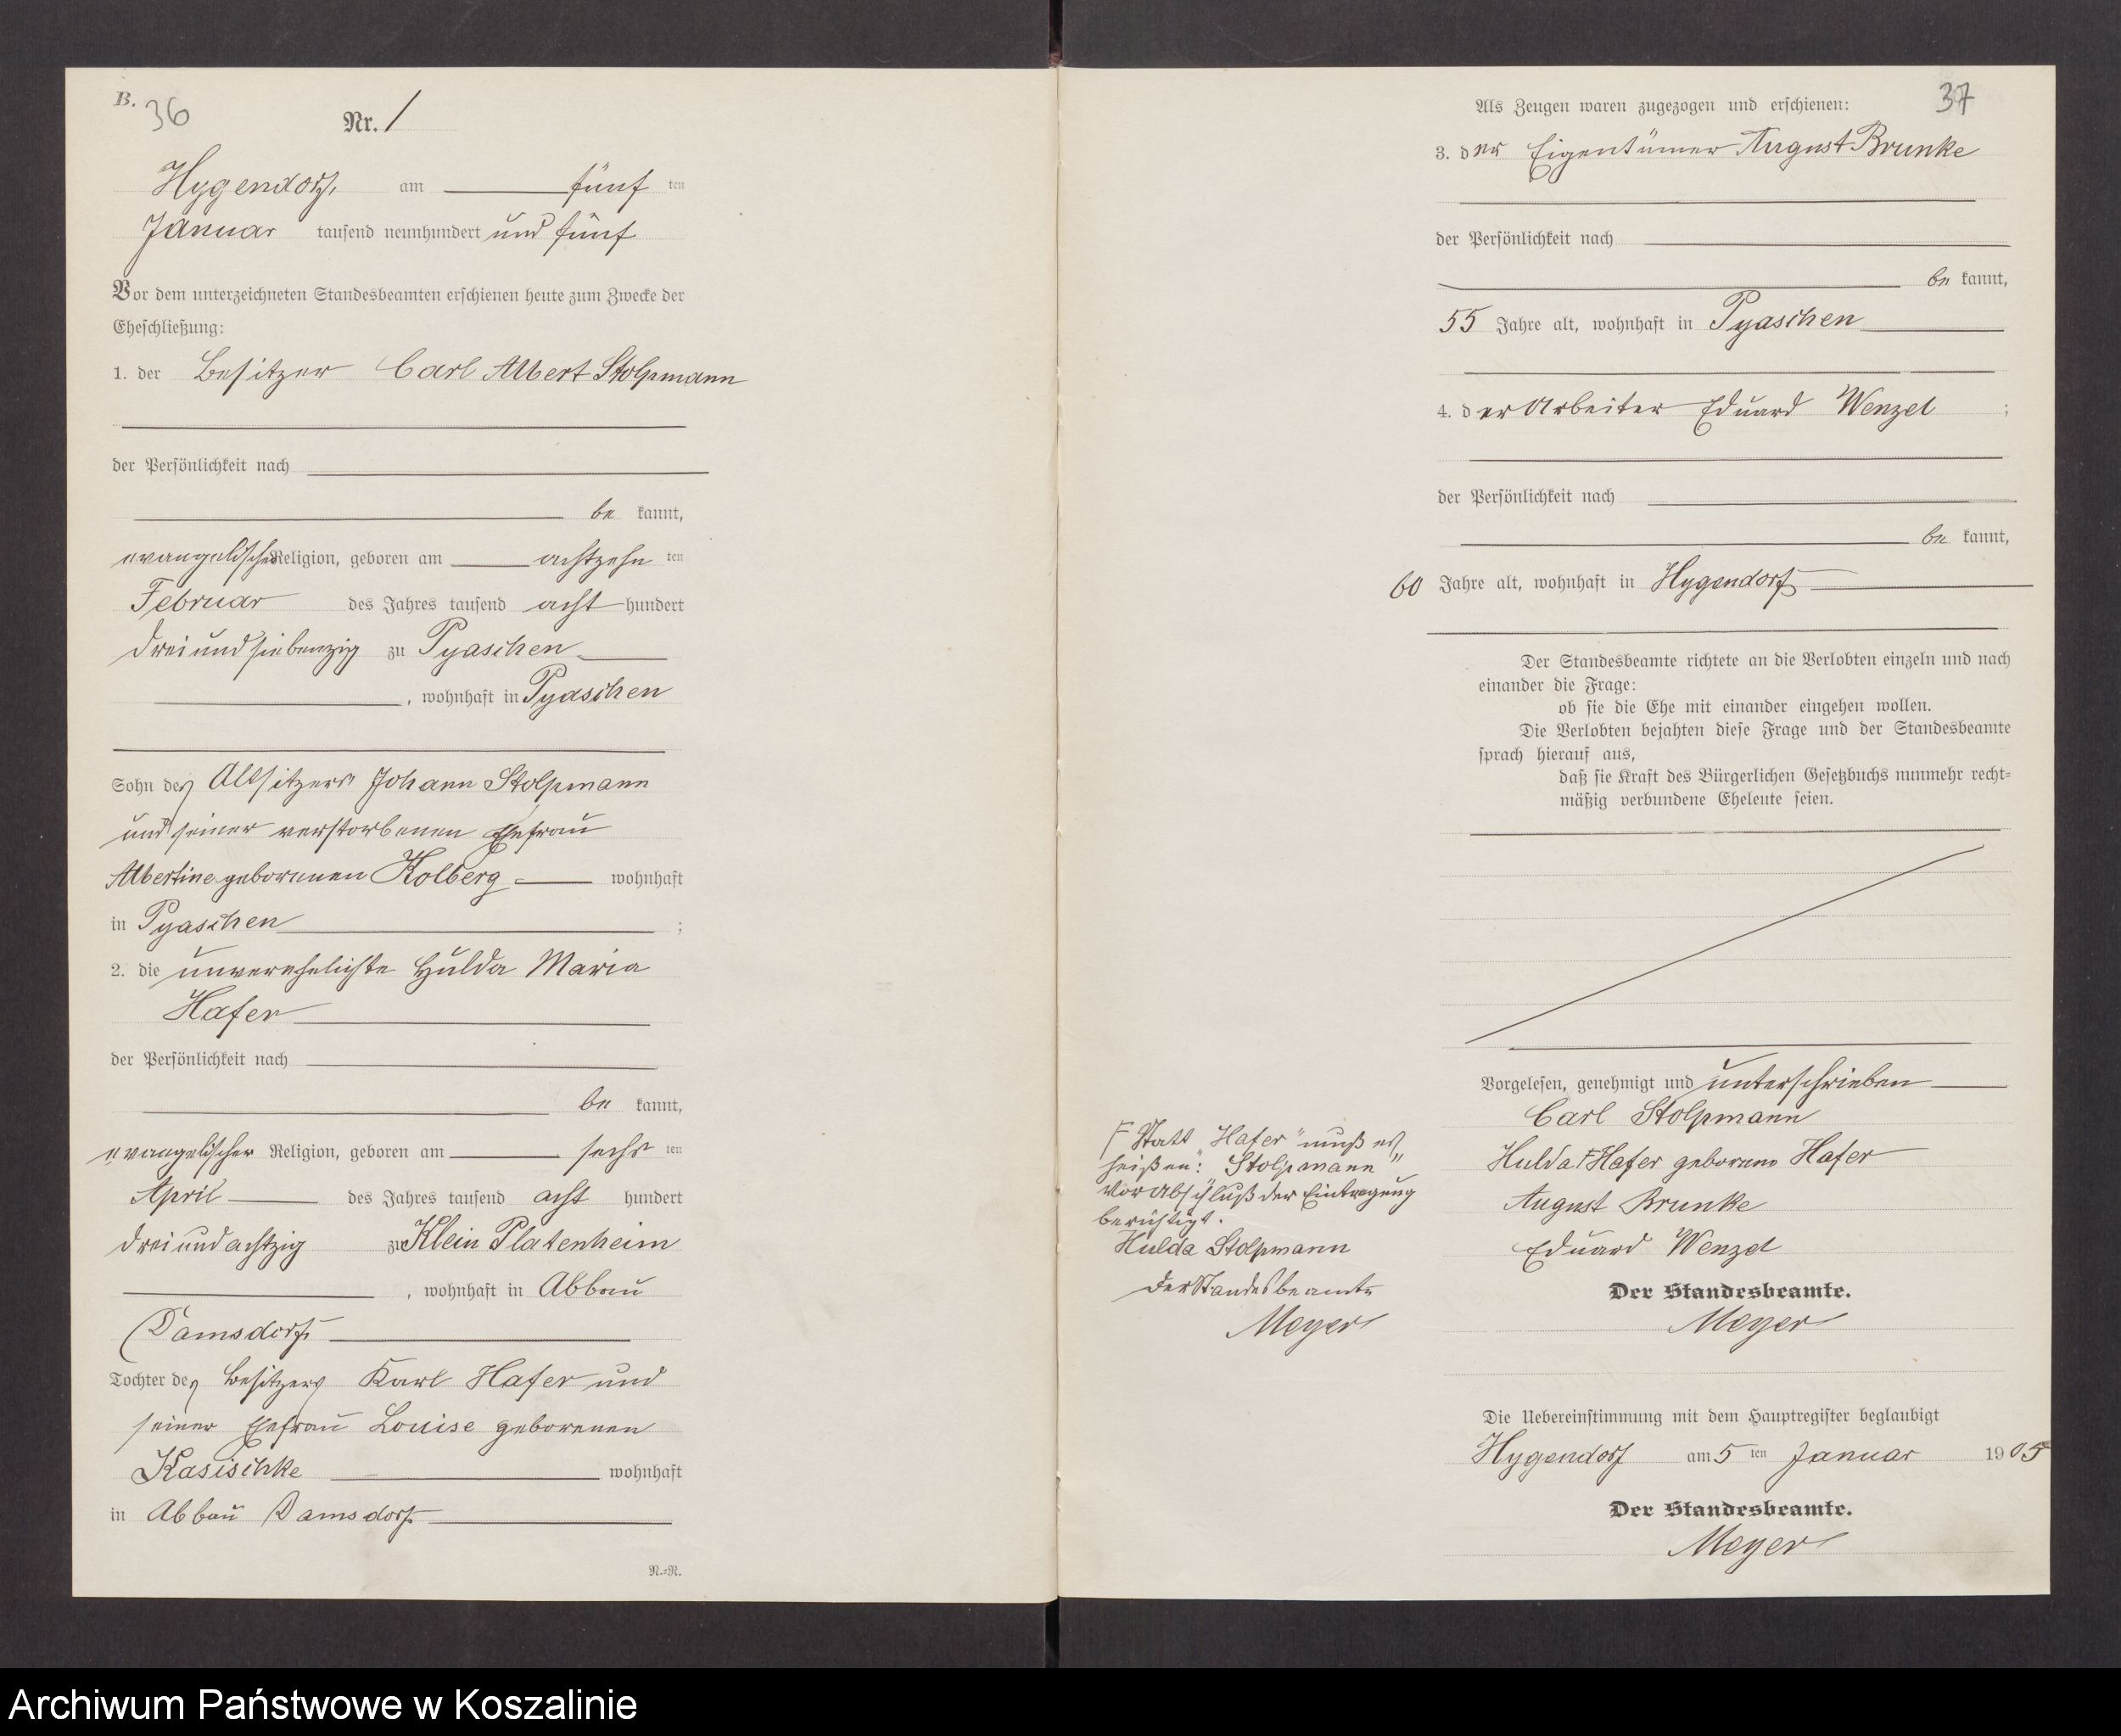 B.
36
Nr. 1
Hygendorf, am fünf ten
Januar tausend neunhundert und fünf
Vor dem unterzeichneten Standesbeamten erschienen heute zum Zwecke der
Eheschließung:
1. der Besitzer Carl Albert Stolpmann
der Persönlichkeit nach
be kannt,
evangelischer Religion, geboren am achtzehn ten
Februar des Jahres tausend acht hundert
drei und siebenzig zu Pyaschen
, wohnhaft in Pyaschen
Sohn des Altsitzers Johann Stolpmann
und seiner verstorbenen Ehefrau
Albertine geborenen Kolberg wohnhaft
in Pyaschen ;
2. die unverehelichte Hulda Maria
Hafer
der Persönlichkeit nach
be kannt,
evangelischer Religion, geboren am sechs ten
April des Jahres tausend acht hundert
drei und achtzig zu Klein Platenheim
, wohnhaft in Abbau
Damsdorf
Tochter des Besitzers Karl Hafer und
seiner Ehefrau Louise geborenen
Kasischke wohnhaft
in Abbau Damsdorf
N.=R.
37
Als Zeugen waren zugezogen und erschienen:
3. der Eigentümer August Brunke
der Persönlichkeit nach
be kannt,
55 Jahre alt, wohnhaft in Pyaschen
4. der Arbeiter Eduard Wenzel ;
der Persönlichkeit nach
be kannt,
60 Jahre alt, wohnhaft in Hygendorf
Der Standesbeamte richtete an die Verlobten einzeln und nach
einander die Frage:
ob sie die Ehe mit einander eingehen wollen.
Die Verlobten bejahten diese Frage und der Standesbeamte
sprach hierauf aus,
daß sie kraft des Bürgerlichen Gesetzbuchs nunmehr recht=
mäßig verbundene Eheleute seien.
Vorgelesen, genehmigt und unterschrieben
Carl Stolpmann
Hulda Hafer geborene Hafer
August Brunke
Eduard Wenzel
Der Standesbeamte.
Meyer
Statt „Hafer" muß es
heißen: „Stolpmann"
Vor Abschluß der Eintragung
berichtigt.
Hulda Stolpmann
Der Standesbeamte
Meyer
Die Uebereinstimmung mit dem Hauptregister beglaubigt
Hygendorf am 5 ten Januar 1905
Der Standesbeamte.
Meyer
Archiwum Państwowe w Koszalinie